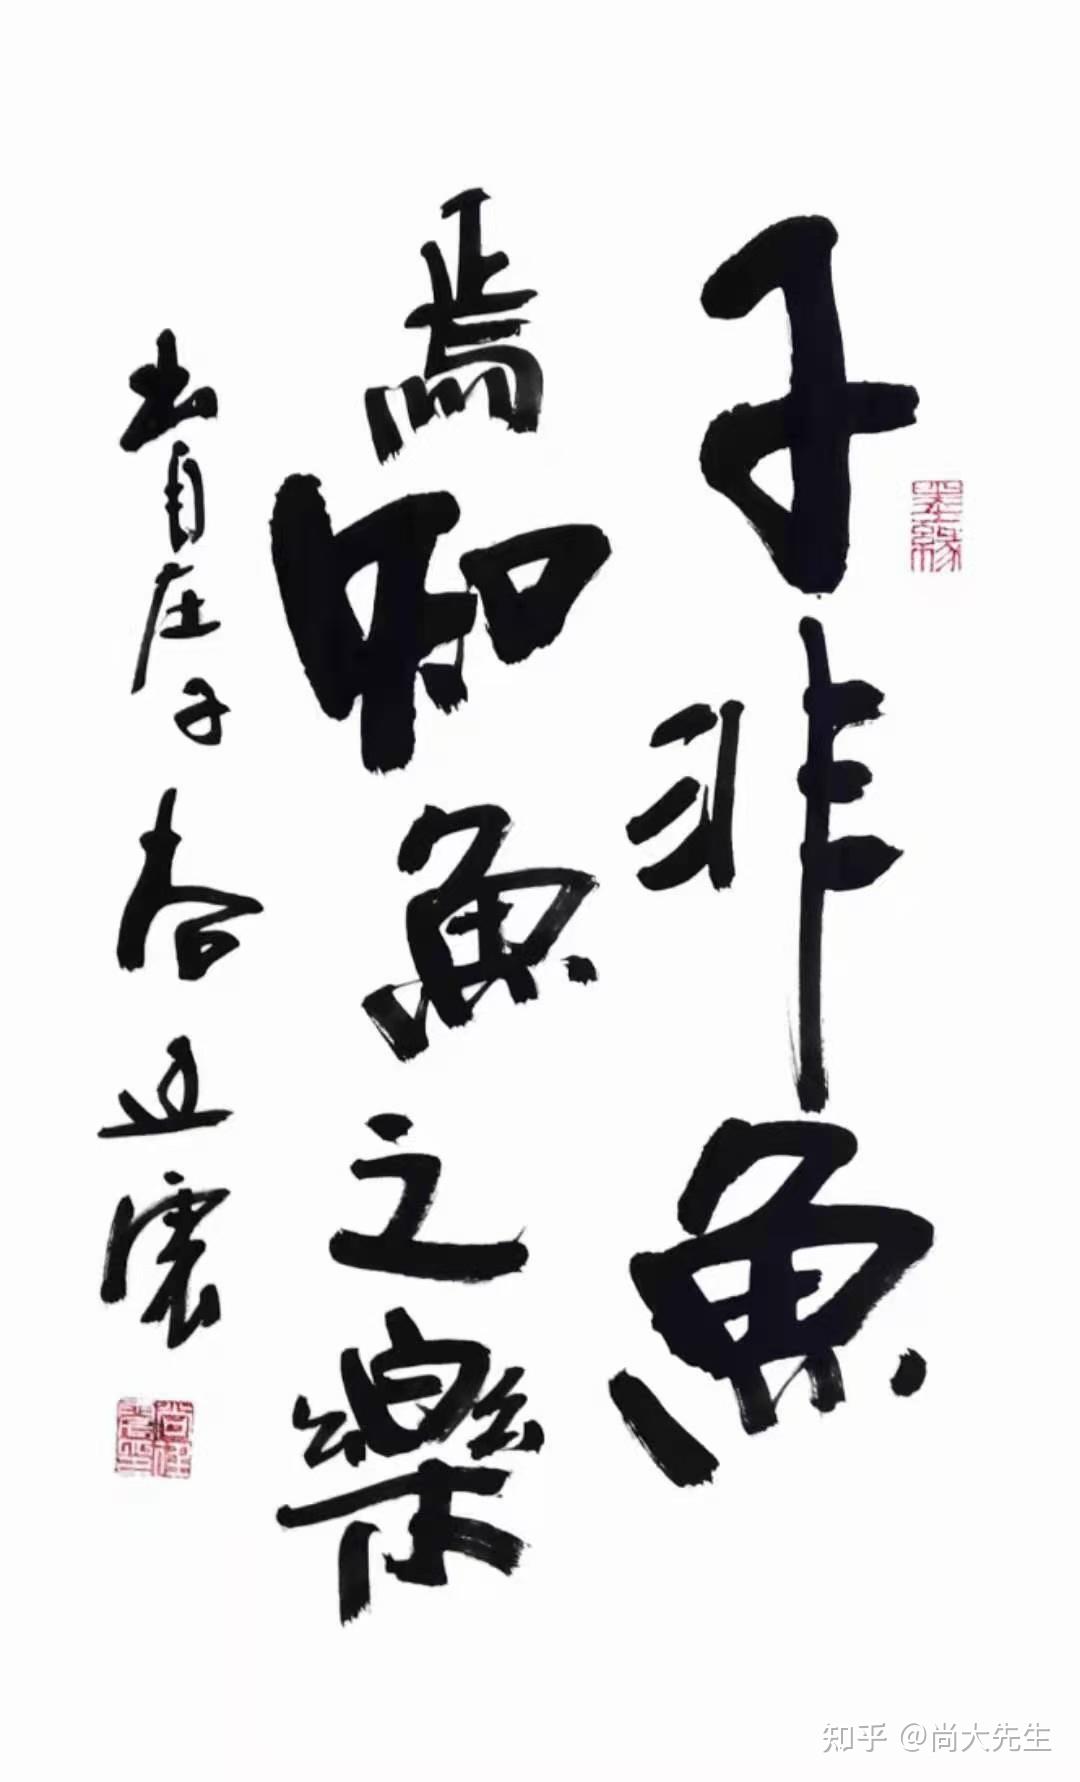 子非魚
焉知魚之樂
出自庄子
墨緣
知乎 @尚大先生